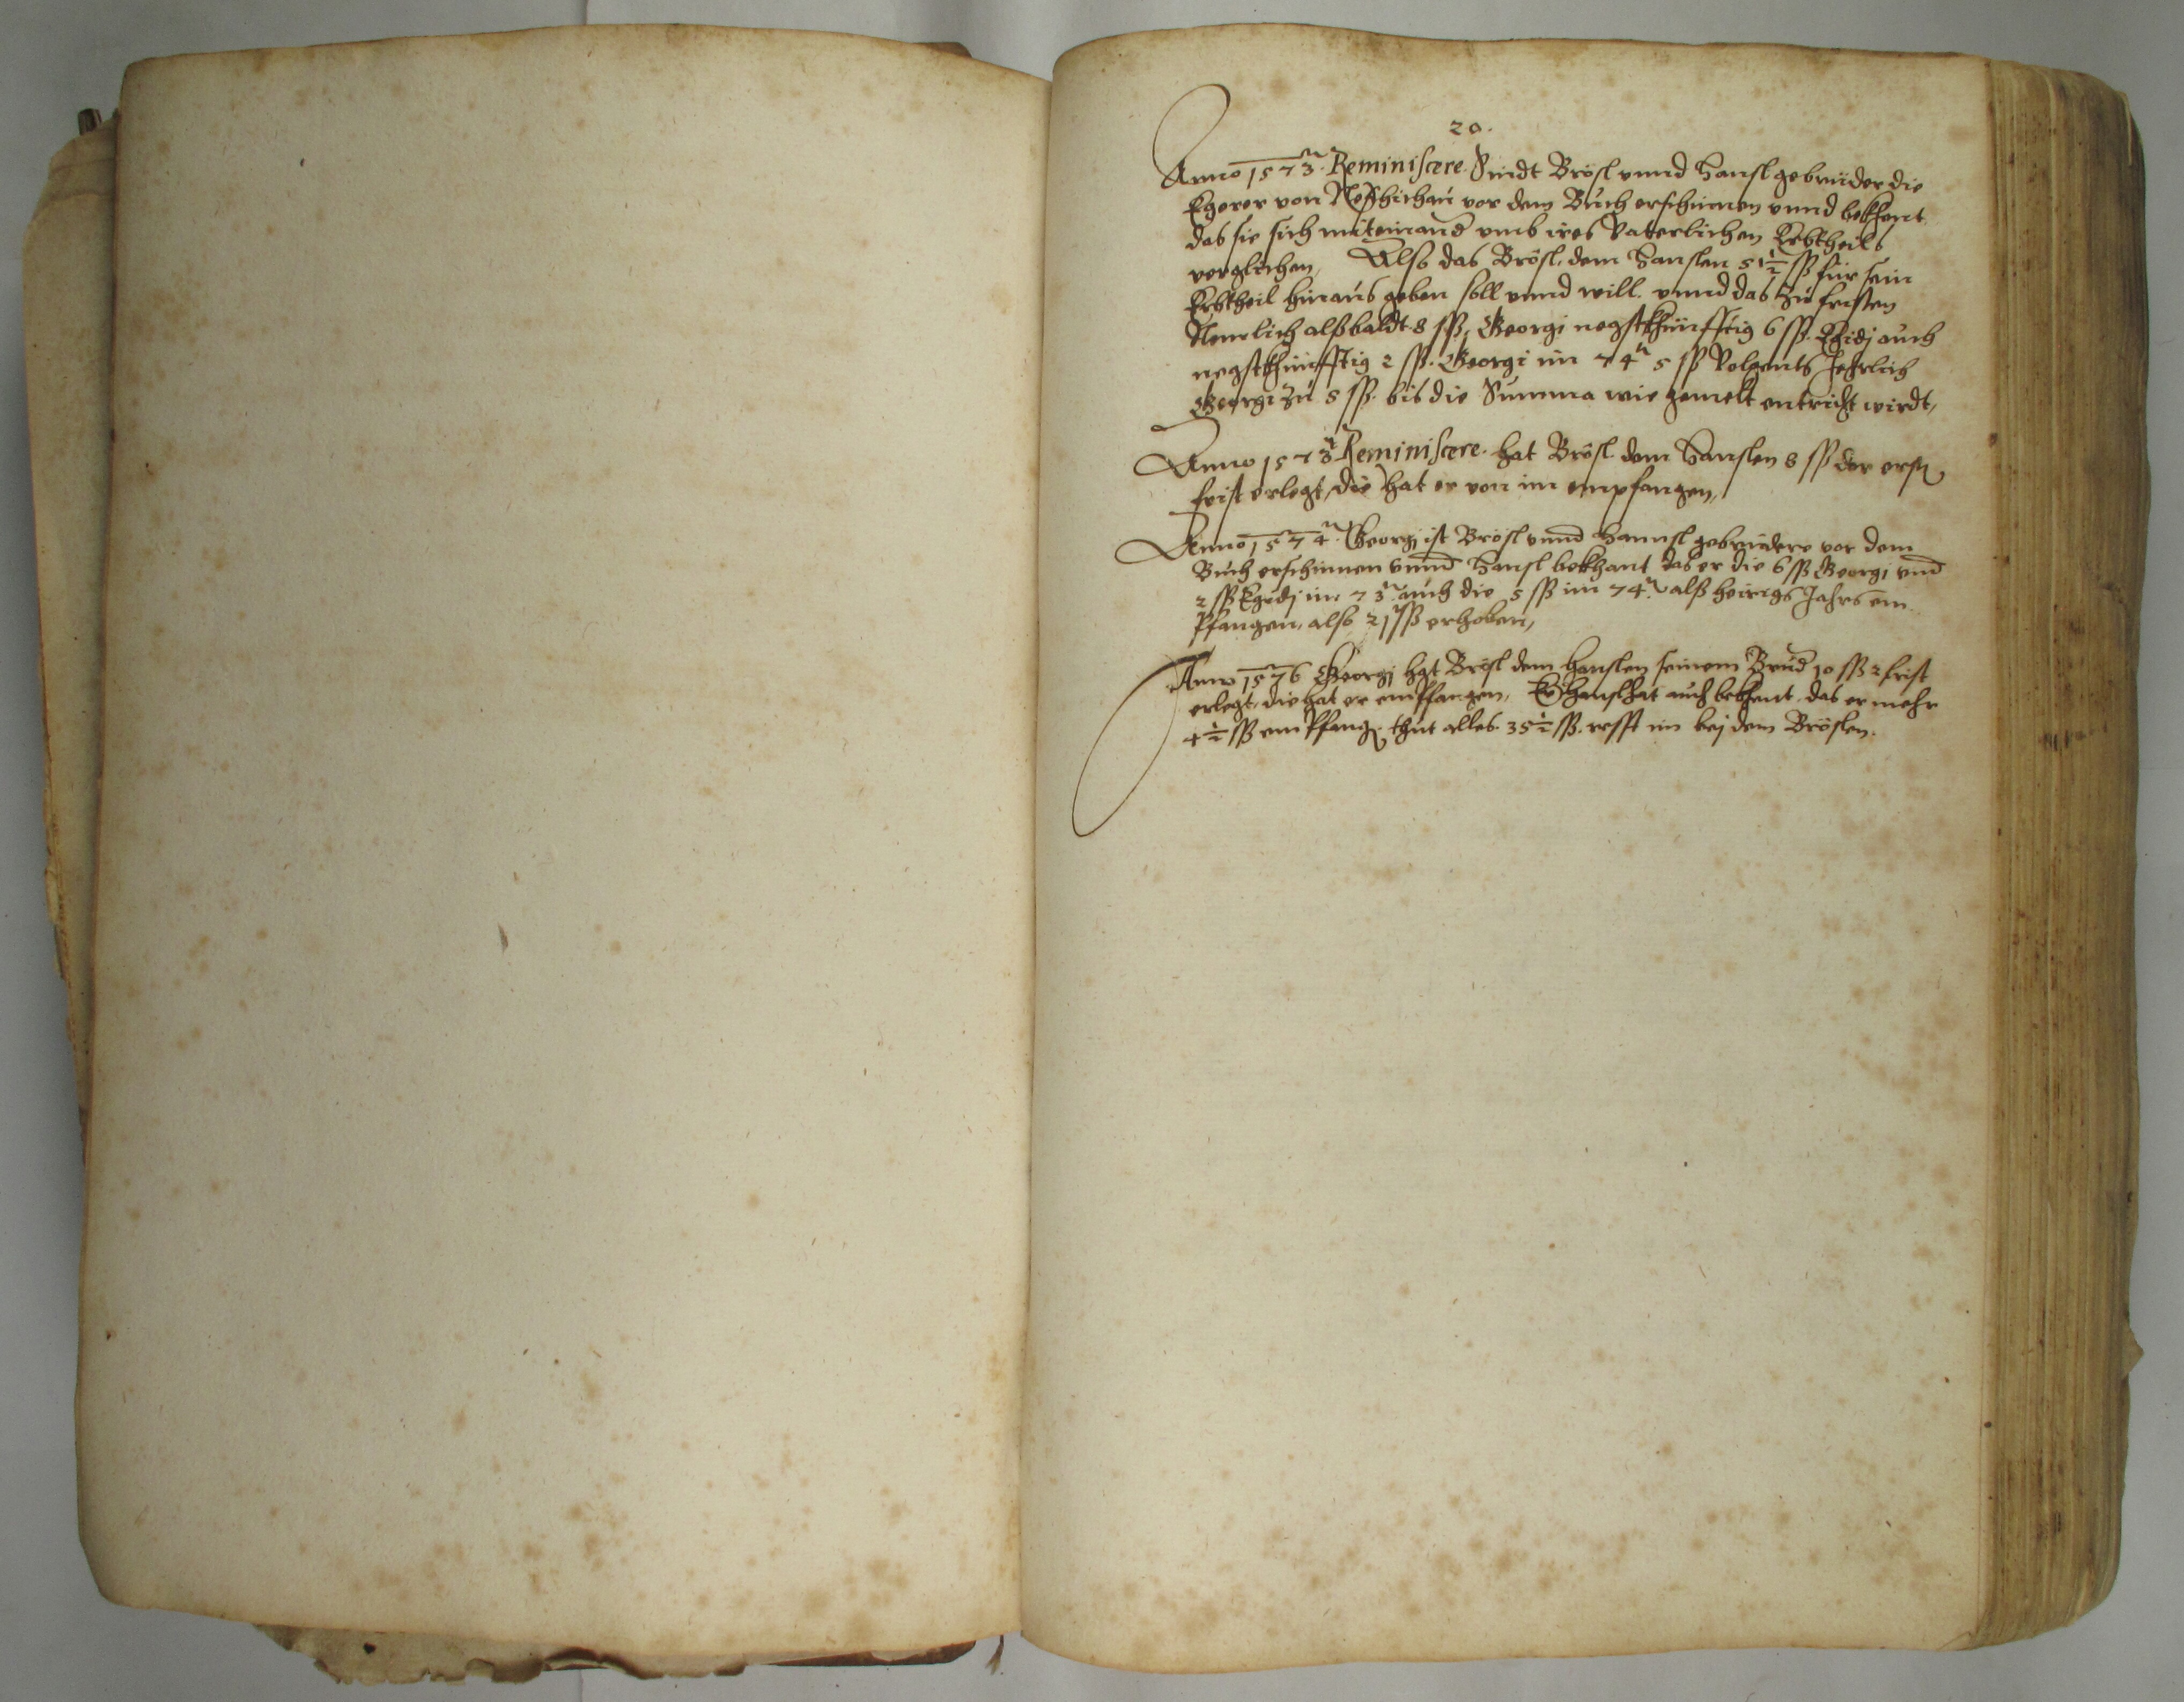 20.
Anno 1573ⁿ. Reminiscere. Sindt Brösl vnnd Hansl gebrüder die
Egerer von vor dem Buch erschinnen vnnd bekhent
das sie sich miteinand vmb ires Vaterlichen Erbtheils
verglichen, Also das Brösl dem Hanslen 51½ ſß für sein
Erbtheil hinaus geben soll vnnd will. vnnd das zu fristen
Nemlich alßbaldt 8 ſß, Georgi negstkhünfftig 6 ſß. Egidj auch
negstkhünfftig 2 ſß. Georgi im 74ⁿ 5 ſß Volgents Jehrlich
Georgi zu 5 ſß. bis die Summa wie gemelt entricht wirdt,
Anno 1573ⁿ Reminiscere. hat Brösl dem Hanslen 8 ſß der erst
frist erlegt, die hat er von im empfangen,
Anno 1574ⁿ. Georgj ist Brösl vnnd Hannsl gebrüdere vor dem
Buch erschinnen vnnd Hansl bekhant das er die 6 ſß Georgj vnd
2 ſß Egidj im 73ⁿ. auch die 5 ſß im 74ⁿ. alß heirigs Jahrs em
pfangen, also 21 ſß erhoben,
Anno 1576 Georgj hat Brösl dem Hanslen seinem Brud 10 ſß 2 frist
erlegt, die hat er empfangen, Er Hansl hat auch bekhent. das er mehr
4½ ſß empfang. thut alles. 35½ ſß. im bej dem Bröslen.